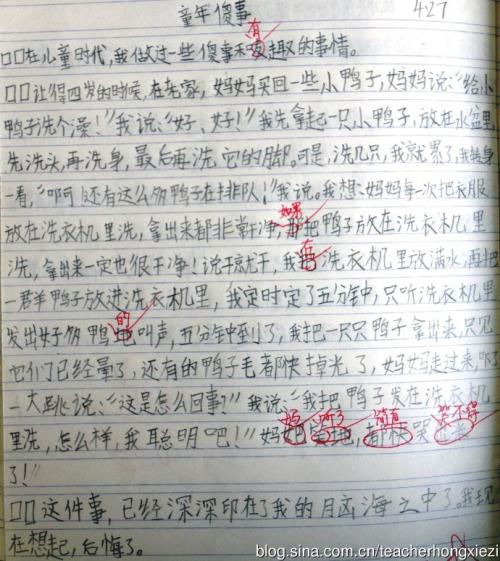 童年傻事 4.27
□□在儿童时代,我做过一些傻事和有趣的事情。
□□记得四岁的时候,在老家,妈妈买回一些小鸭子,妈妈说:“给小
鸭子洗个澡!”我说:“好、好!”我先拿起一只小鸭子,放在水盆里
先洗头,再洗身,最后再洗它的脚。可是,洗几只,我就累了,我转身
一看,“啊!还有这么多鸭子在排队!”我说。我想:妈妈每次把衣服
放在洗衣机里洗,拿出来都非常干净,如果把鸭子放在洗衣机里
洗,拿出来一定也很干净!说干就干,我在洗衣机里放满水,再把
一群鸭子放进洗衣机里,我定时定了五分钟,只听洗衣机里
发出好多鸭的叫声,五分钟到了,我把一只只鸭子拿出来,只见
它们已经晕了,还有的鸭子毛都快掉光了,妈妈走过来,吓了
一大跳说:“这是怎么回事?”我说:“我把鸭子发在洗衣机
里洗,怎么样,我聪明吧!”妈妈 简直 哭不得
都快哭
了!”
□□这件事,已经深深印在了我的脑海之中了。我现
在想起,后悔了。
blog.sina.com.cn/teacherhongxiezi